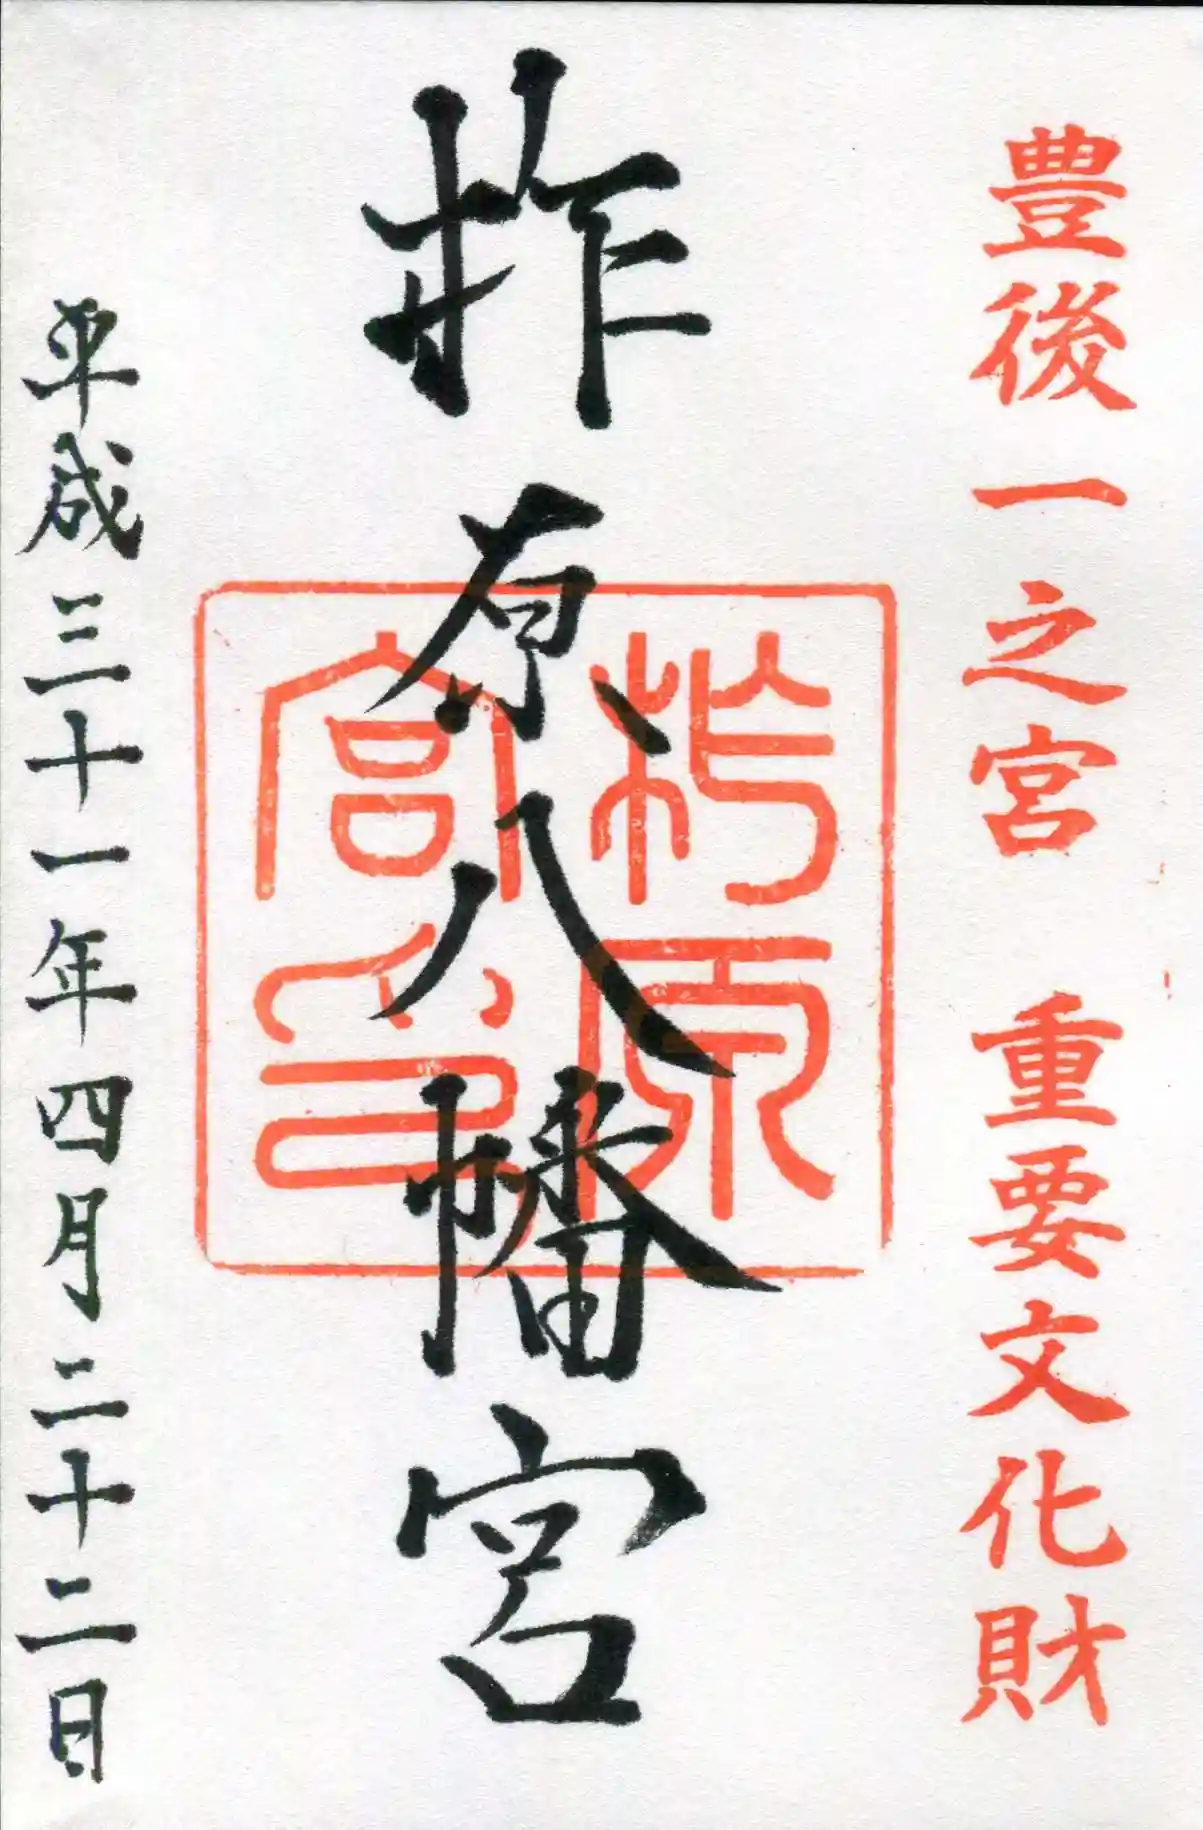 豊後一之宮 重要文化財
柞原八幡宮
柞原
宮印
平成三十一年四月二十二日